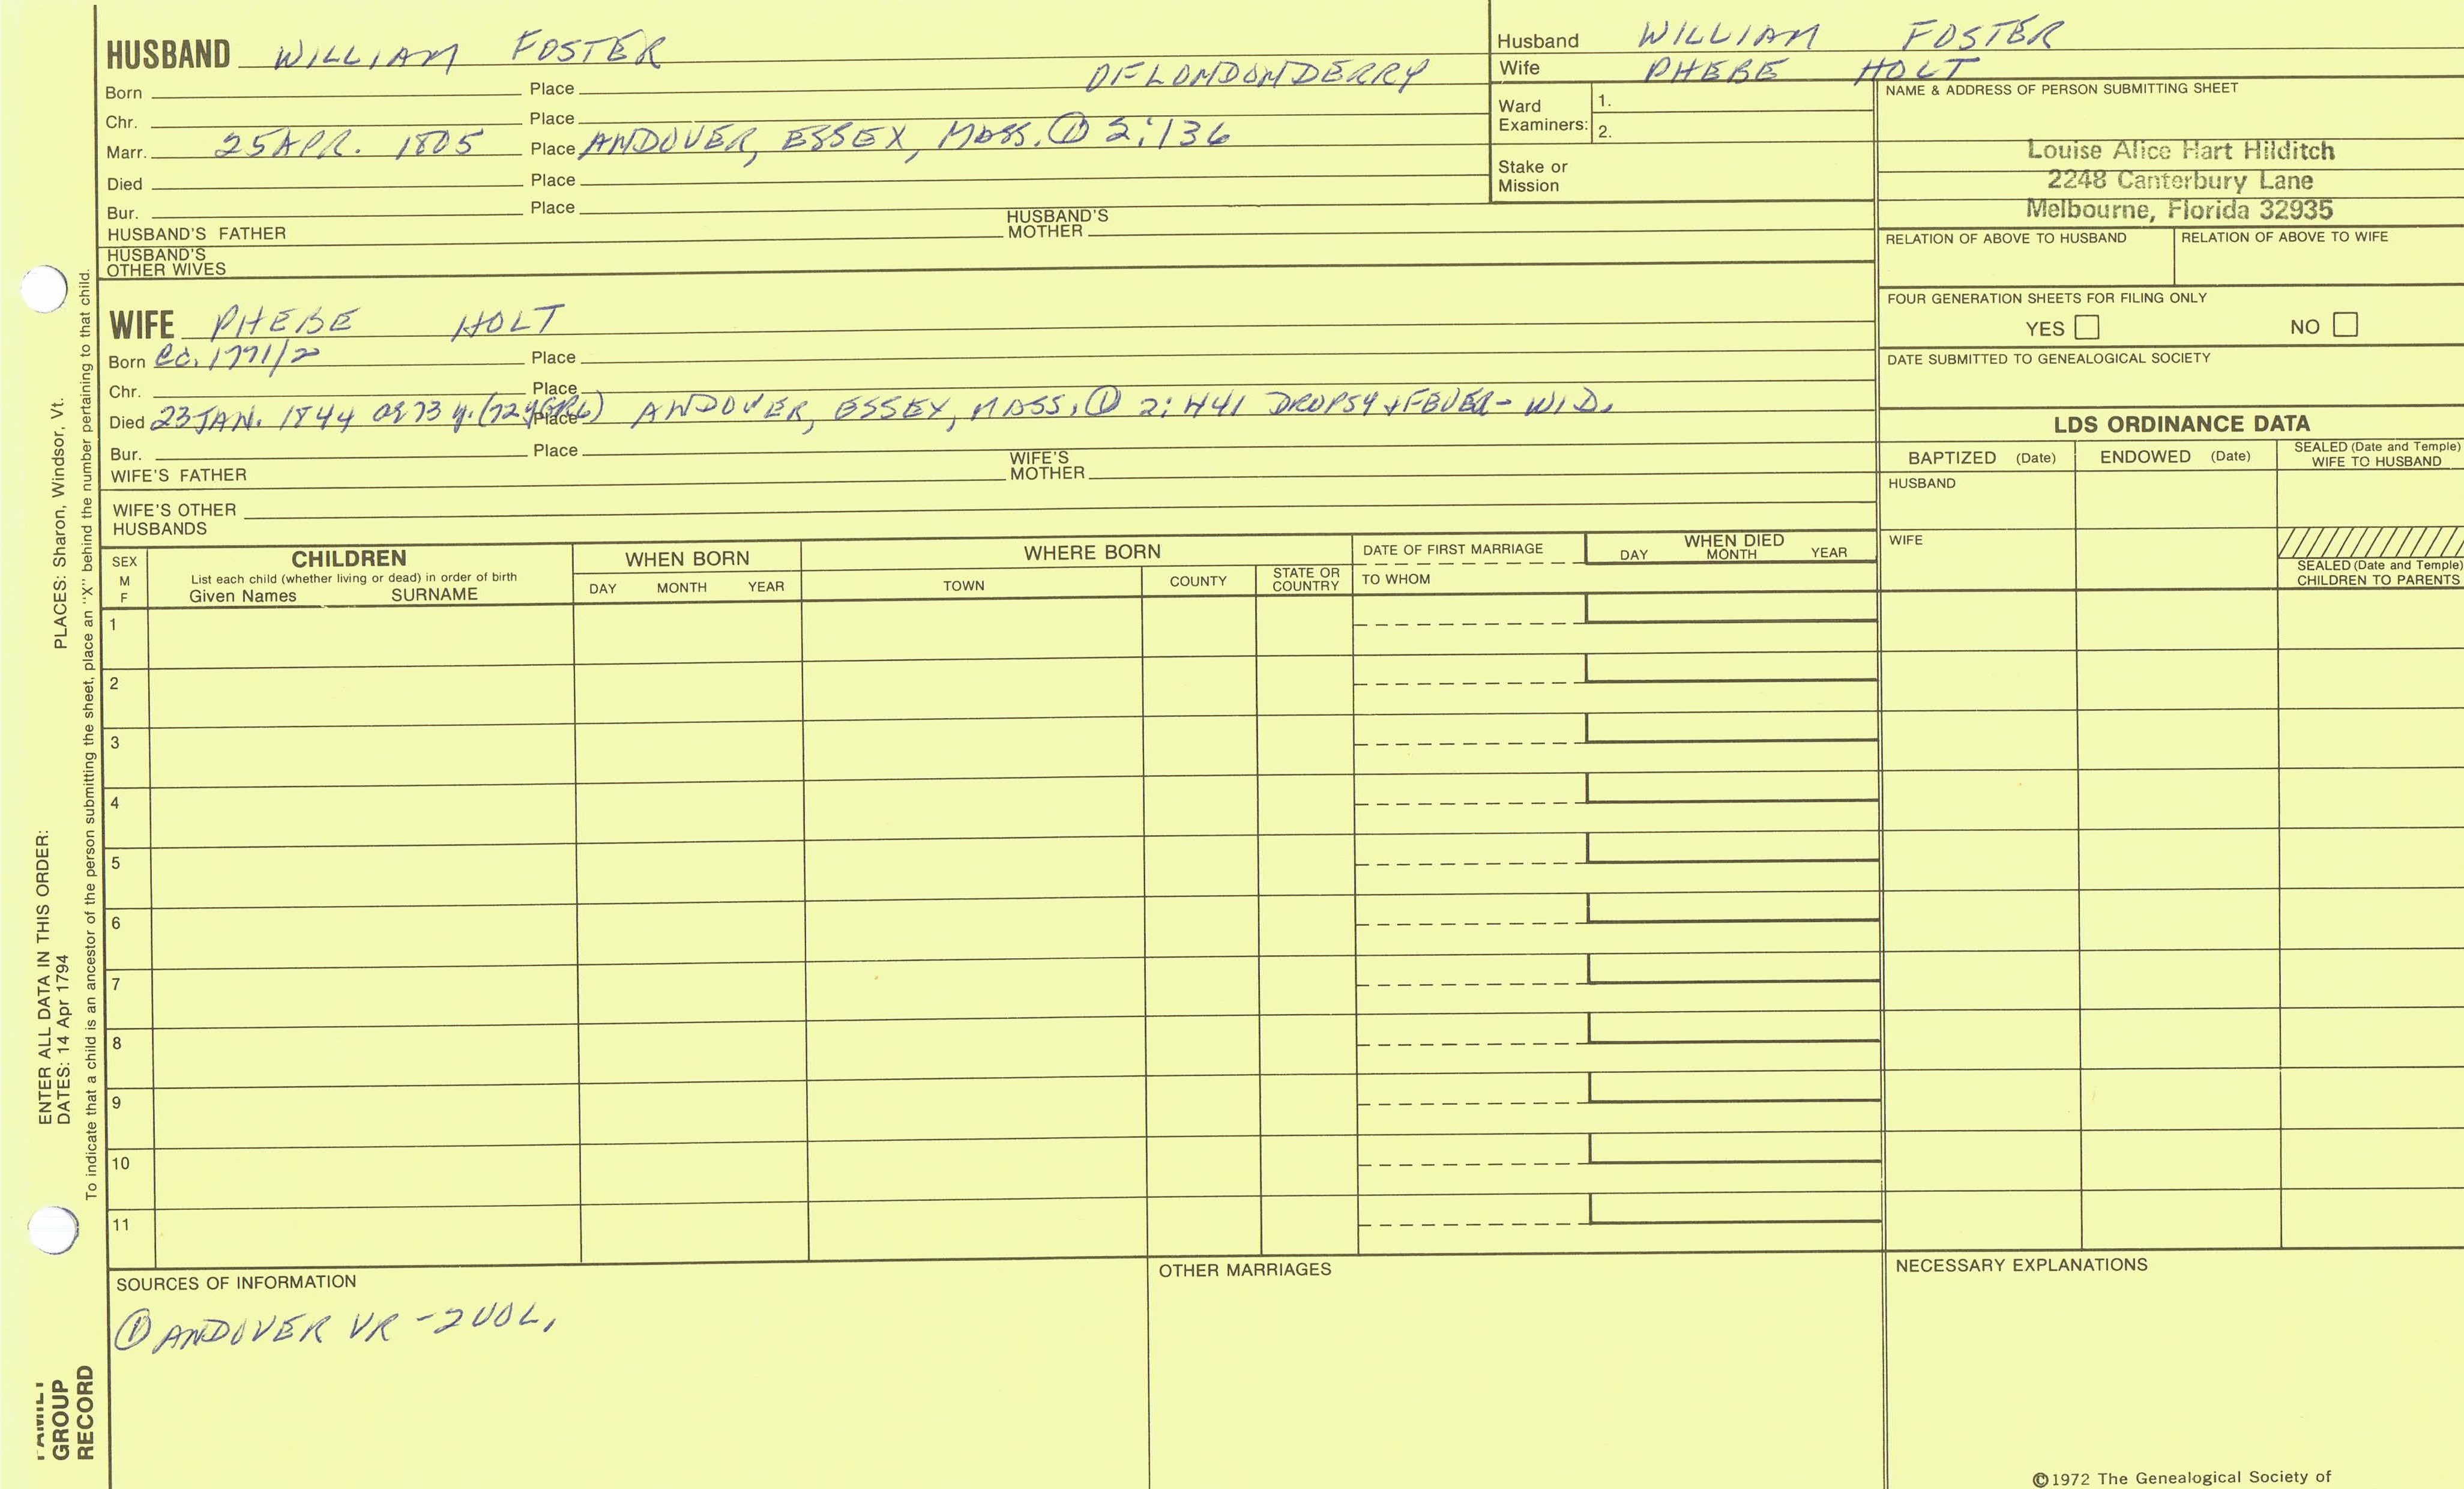 HUSBAND WILLIAM FOSTER
Born Place OF LONDONDERRY
Chr. Place
Marr. 25 APR. 1805 Place ANDOVER, ESSEX, MASS. ① 2:136
Died Place
Bur. Place
HUSBAND'S FATHER HUSBAND'S MOTHER
HUSBAND'S OTHER WIVES
WIFE PHEBE HOLT
Born Ca. 1771/2 Place
Chr. Place
Died 23 JAN. 1844 ag 73 y. (72 y GR6) Place ANDOVER, ESSEX, MASS. ① 2:441 DROPSY + FEVER - WID.
Bur. Place
WIFE'S FATHER WIFE'S MOTHER
WIFE'S OTHER HUSBANDS
Husband WILLIAM FOSTER
Wife PHEBE HOLT
Ward Examiners: 1.
2.
Stake or Mission
NAME & ADDRESS OF PERSON SUBMITTING SHEET
Louise Alice Hart Hilditch
2248 Canterbury Lane
Melbourne, Florida 32935
RELATION OF ABOVE TO HUSBAND RELATION OF ABOVE TO WIFE
FOUR GENERATION SHEETS FOR FILING ONLY
YES NO
DATE SUBMITTED TO GENEALOGICAL SOCIETY
LDS ORDINANCE DATA
BAPTIZED (Date) ENDOWED (Date) SEALED (Date and Temple) WIFE TO HUSBAND
HUSBAND
WIFE
SEALED (Date and Temple) CHILDREN TO PARENTS
SEX M F
CHILDREN
List each child (whether living or dead) in order of birth
Given Names SURNAME
WHEN BORN
DAY MONTH YEAR
WHERE BORN
TOWN COUNTY STATE OR COUNTRY
DATE OF FIRST MARRIAGE
TO WHOM
WHEN DIED
DAY MONTH YEAR
1
2
3
4
5
6
7
8
9
10
11
SOURCES OF INFORMATION
① ANDOVER VR - 2 VOL.
OTHER MARRIAGES
NECESSARY EXPLANATIONS
©1972 The Genealogical Society of
ENTER ALL DATA IN THIS ORDER:
DATES: 14 Apr 1794 PLACES: Sharon, Windsor, Vt.
To indicate that a child is an ancestor of the person submitting the sheet, place an "X" behind the number pertaining to that child.
FAMILY
GROUP
RECORD